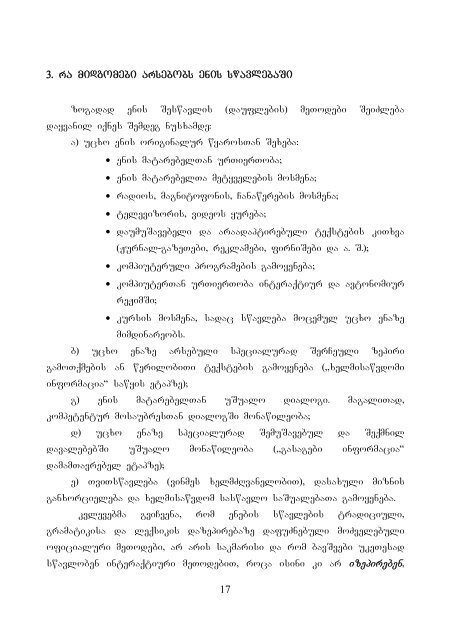 3. რა მიდგომები არსებობს ენის სწავლებაში
ზოგადად ენის შესწავლის (დაუფლების) მეთოდები შეიძლება
დაყვანილ იქნეს შემდეგ ნუსხამდე:
ა) უცხო ენის ორიგინალურ წყაროსთან შეხება:
• ენის მატარებელთან ურთიერთობა;
• ენის მატარებელთა მეტყველების მოსმენა;
• რადიოს, მაგნიტოფონის, ჩანაწერების მოსმენა;
• ტელევიზორის, ვიდეოს ყურება;
• დაუმუშავებელი და არაადაპტირებული ტექსტების კითხვა
(ჟურნალ-გაზეთები, რეკლამები, ფირნიშები და ა. შ.);
• კომპიუტერული პროგრამების გამოყენება;
• კომპიუტერთან ურთიერთობა ინტერაქტიურ და ავტონომიურ
რეჟიმში;
• კურსის მოსმენა, სადაც სწავლება მოცემულ უცხო ენაზე
მიმდინარეობს.
ბ) უცხო ენაზე არსებული სპეციალურად შერჩეული ზეპირი
გამოთქმების ან წერილობითი ტექსტების გამოყენება („ხელმისაწვდომი
ინფორმაცია“ საწყის ეტაპზე);
გ) ენის მატარებელთან უშუალო დიალოგი. მაგალითად,
კომპეტენტურ მოსაუბრესთან დიალოგში მონაწილეობა;
დ) უცხო ენაზე სპეციალურად შემუშავებულ და შექმნილ
დავალებებში უშუალო მონაწილეობა („გასაგები ინფორმაცია“
დამამთავრებელ ეტაპზე);
ე) თვითსწავლება (ვინმეს ხელმძღვანელობით), დასახული მიზნის
განხორციელება და ხელმისაწვდომ სასწავლო საშუალებათა გამოყენება.
კვლევებმა გვიჩვენა, რომ ენების სწავლების ტრადიციული,
გრამატიკისა და ლექსიკის დაზეპირებაზე დაფუძნებული მოძველებული
ოფიციალური მეთოდები, არ არის საკმარისი და რომ ბავშვები უკეთესად
სწავლობენ ინტერაქტიური მეთოდებით, როცა ისინი კი არ იზეპირებენ,
17